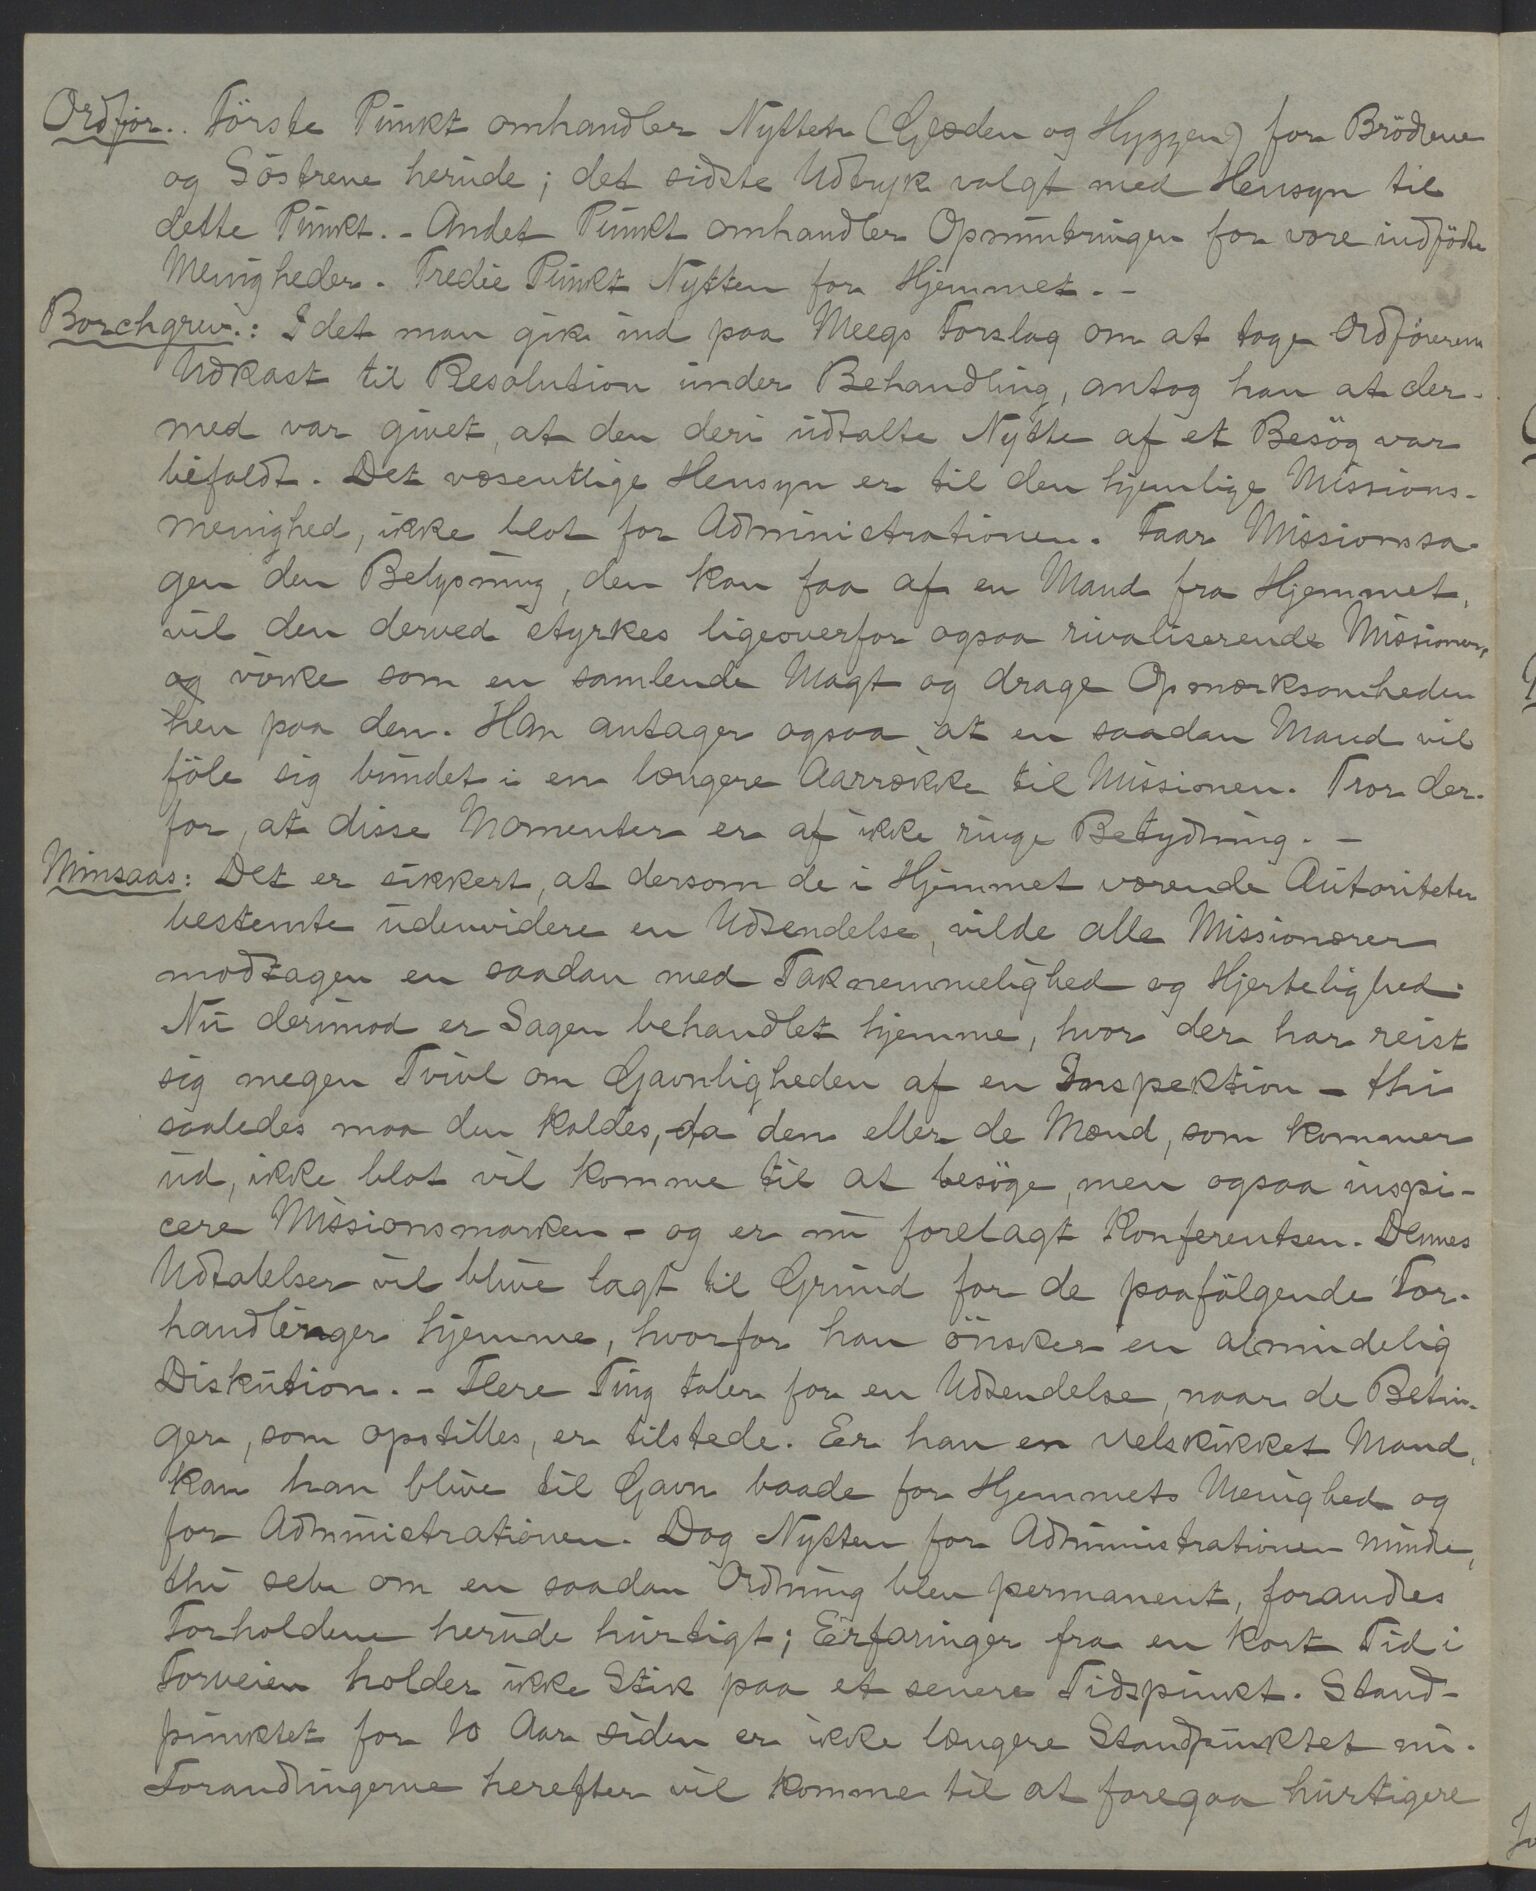 Ordfør.. Første Punkt omhandler Nytten (Glæden og Hyggen) for Brödrene
og Söstrene herude; det sidste Udtryk valgt med Hensyn til
dette Punkt. - Andet Punkt omhandler Opmuntringen for vore indfödte
Menigheder. Tredie Punkt Nytten for Hjemmet. -
Borchgrev.: Idet man gik ind paa Meegs Forslag om at tage Ordförerens
Udkast til Resolution under Behandling, antog han at der-
med var givet, at den deri udtalte Nytte af et Besög var
bifaldt. Det væsentlige Hensyn er til den hjemlige Missions-
menighed, ikke blot for Administrationen. Faar Missionssa-
gen den Belysning, den kan faa af en Mand fra Hjemmet,
vil den derved styrkes ligeoverfor ogsaa rivaliserende Missioner,
og virke som en samlende Magt og drage Opmærksomheden
hen paa den. Han antager ogsaa at en saadan Mand vil
föle sig bundet i en længere Aarrække til Missionen. Tror der-
for, at disse Momenter er af ikke ringe Betydning. -
Minsaas: Det er sikkert, at dersom de i Hjemmet værende Autoriteter
bestemte udenvidere en Udsendelse, vilde alle Missionærer
modtagen en saadan med Taknemmelighed og Hjertelighed.
Nu derimod er Sagen behandlet hjemme, hvor der har reist
sig megen Tvivl om Gavnligheden af en Inspektion - thi
saaledes maa den kaldes, da den eller de Mænd, som kommer
ud, ikke blot vil komme til at besöge, men ogsaa inspi-
cere Missionsmarken - og er nu forelagt Konferentsen. Dennes
Udtalelser vil blive lagt til Grund for de paafölgende For-
handlinger hjemme, hvorfor han önsker en almindelig
Diskution. - Flere Ting taler for en Udsendelse, naar de Betin-
ger, som opstilles, er tilstede. Er han en velskikket Mand,
kan han blive til Gavn baade for Hjemmets Menighed og
for Administrationen. Dog Nytten for Administrationen mindre,
thi selv om en saadan Ordning blev permanent, forandres
Forholdene herude hurtigt; Erfaringer fra en kort Tid i
Forveien holder ikke Stik paa et senere Tidspunkt. Stand-
punktet for 10 Aar siden er ikke længere Standpunktet nu.
Forandringerne herefter vil komme til at foregaa hurtigere